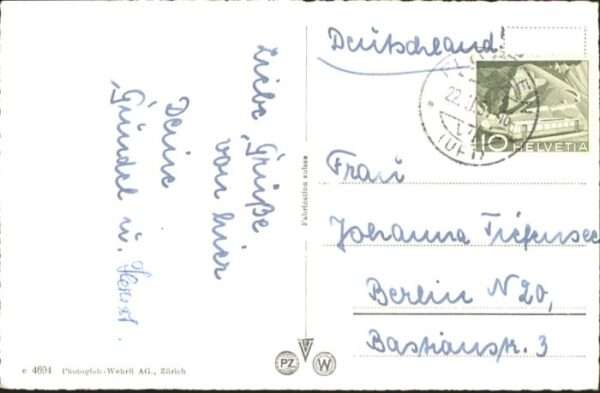 Liebe Grüße
von hier
Deine
Gündel u. Horst.
Fabrication suisse
e 4694 Photoglob-Wehrli AG., Zürich
PZ W
Deutschland!
22.
(URI)
10 HELVETIA
Frau
Johanna Tiefensee
Berlin N 20,
Bastianstr. 3